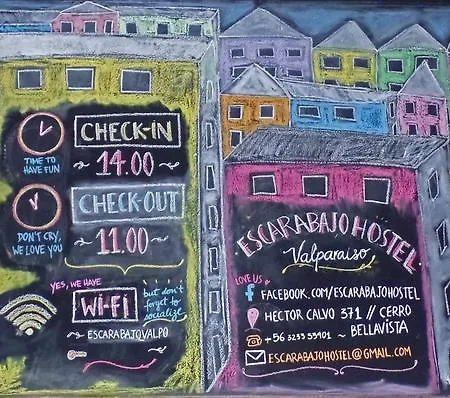 CHECK-IN
TIME TO
HAVE FUN
14.00
CHECK-OUT
DON'T CRY,
WE LOVE YOU
11.00
YES, WE HAVE
Wi-Fi
but don't
forget to
socialize
ESCARABAJOVALPO
ESCARABAJO HOSTEL
Valparaíso
LOVE US
FACEBOOK.COM/ESCARABAJOHOSTEL
HECTOR CALVO 371 // CERRO
BELLAVISTA
+56 3233 55901
ESCARABAJOHOSTEL@GMAIL.COM